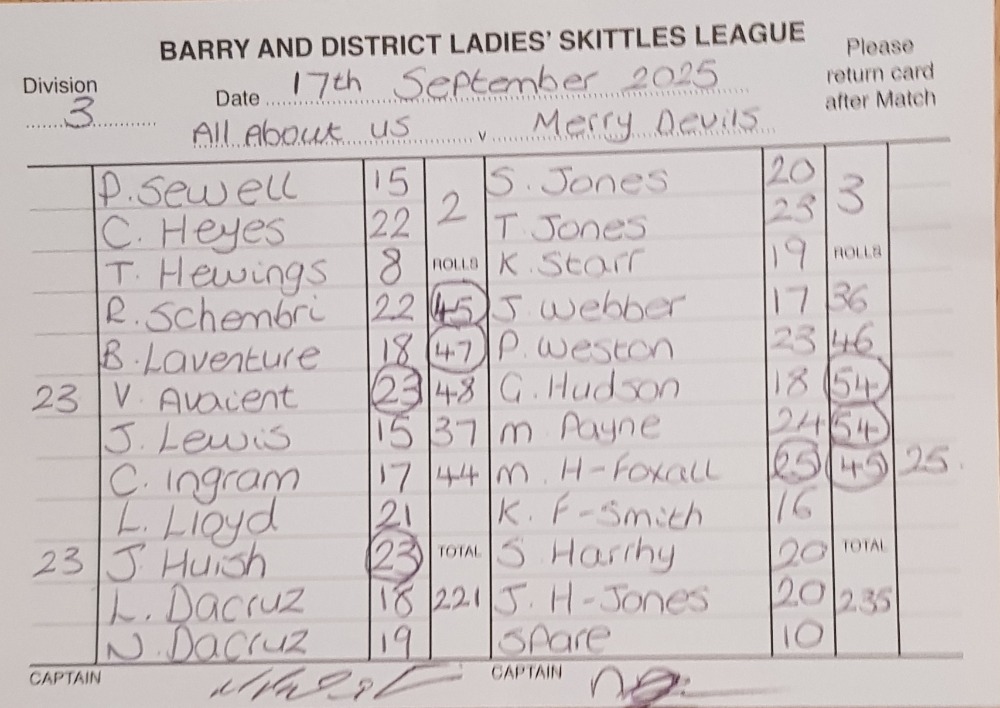 BARRY AND DISTRICT LADIES' SKITTLES LEAGUE
Please return card after Match
Division 3
Date 17th September 2025
All About us v Merry Devils
P. Sewell 15 2 S. Jones 20 3
C. Heyes 22 T. Jones 23
T. Hewings 8 ROLLS K. Starr 19 ROLLS
R. Schembri 22 45 J. Webber 17 36
B. Laventure 18 47 P. Weston 23 46
23 V. Avacent 23 48 G. Hudson 18 54
J. Lewis 15 37 M Payne 24 54
C. Ingram 17 44 M. H-Foxall 25 45 25.
L. Lloyd 21 K. F-Smith 16
23 J. Huish 23 TOTAL S Harrhy 20 TOTAL
L. Dacruz 18 221 J. H-Jones 20 235
N. Dacruz 19 Spare 10
CAPTAIN CAPTAIN